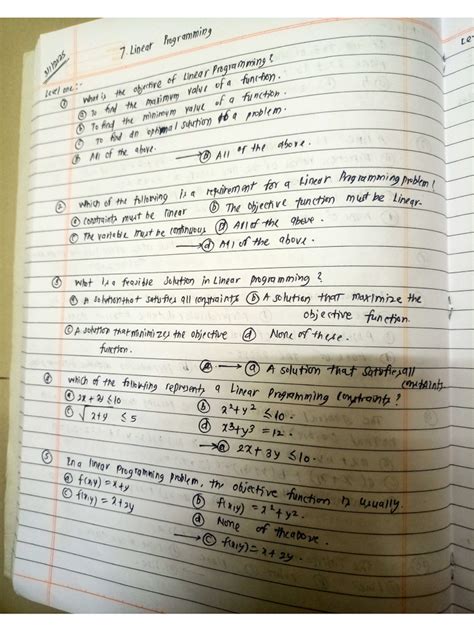 7. Linear Programming
Level one :-
① What is the objective of Linear Programming?
ⓐ To find the maximum value of a function.
ⓑ To find the minimum value of a function.
ⓒ To find an optimal solution to a problem.
ⓓ All of the above.
→ ⓓ All of the above.
② Which of the following is a requirement for a Linear Programming problem?
ⓐ Constraints must be linear ⓑ The objective function must be Linear.
ⓒ The variable must be continuous ⓓ All of the above.
→ ⓓ All of the above.
③ What is a feasible solution in Linear programming?
ⓐ A solution that satisfies all constraints ⓑ A solution that maximize the
objective function.
ⓒ A solution that minimizes the objective ⓓ None of these.
function.
→ ⓐ A solution that satisfies all
constraints.
④ Which of the following represents a Linear Programming constraints?
ⓐ 2x + 3y ≤ 10 ⓑ x²+y² ≤ 10.
ⓒ √x+y ≤ 5 ⓓ x³+y³ = 12.
→ ⓐ 2x + 3y ≤ 10.
⑤ In a linear Programming problem, the objective function is usually.
ⓐ f(x,y) = x+y ⓑ f(x,y) = x²+y².
ⓒ f(x,y) = x+2y ⓓ None of the above.
→ ⓒ f(x,y) = x + 2y.